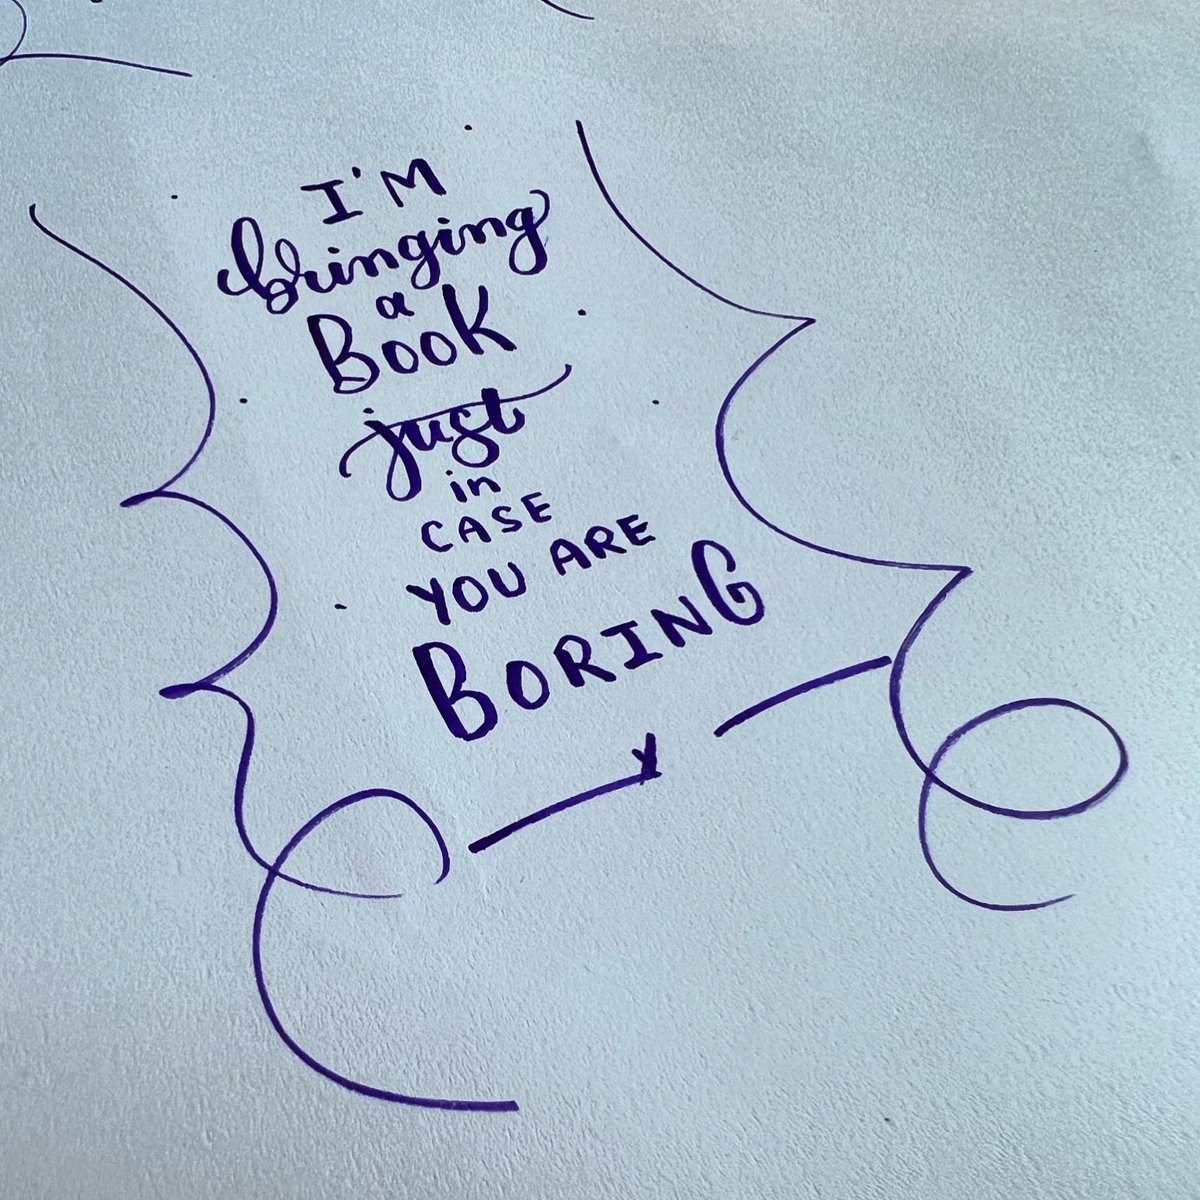 I'M
bringing
a
BOOK
just
in
CASE
YOU ARE
BORING